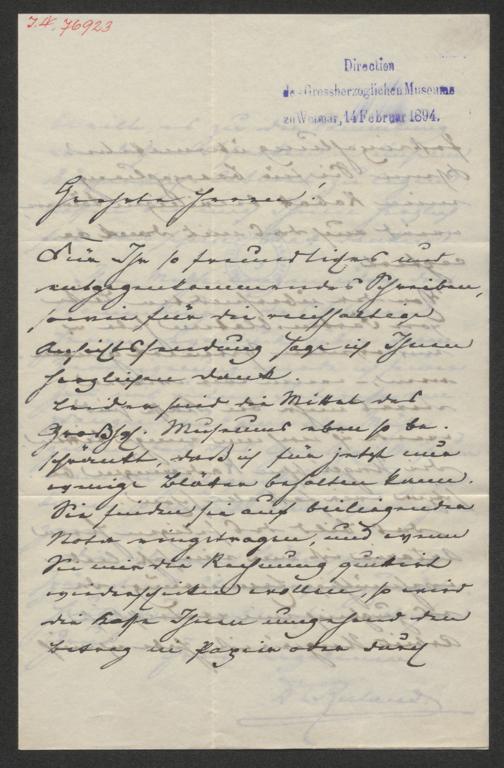 J.N. 76923
Direction
des Grossherzoglichen Museums
zu Weimar, 14 Februar 1894.
Geehrte Herren!
Für Ihr so freundliches und
entgegenkommendes Schreiben,
sowie für die reichhaltige
Ansichtssendung sage ich Ihnen
herzlichen Dank.
Leider sind die Mittel des
Großhgl. Museums eben so be-
schränkt, daß ich für jetzt nur
wenige Blätter behalten kann.
Sie finden sie auf beiliegender
Note eingetragen, und wenn
Sie mir die Rechnung quittirt
wiederschicken wollen, so wird
die Kasse Ihnen umgehend den
Betrag in Papier oder durch